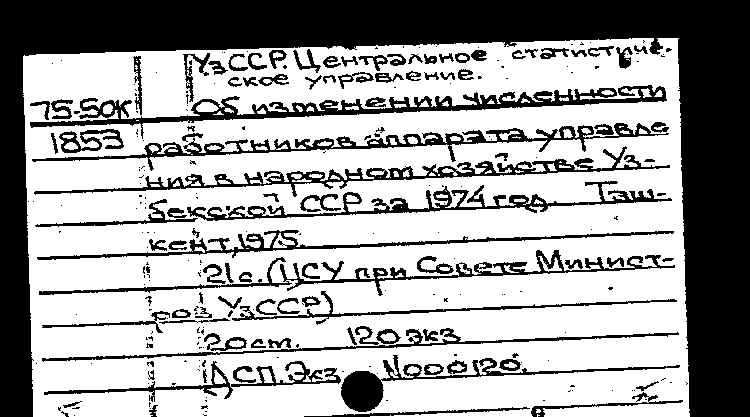 УзССР. Центральное статистиче-
ское управление.
75-50к Об изменении численности
1853 работников аппарата управле
ния в народном хозяйстве Уз-
бекской ССР за 1974 год. Таш-
кент, 1975.
21с. (ЦСУ при Совете Минист-
ров УзССР)
20 ст. 120 экз
ДСП. Экз N000120.